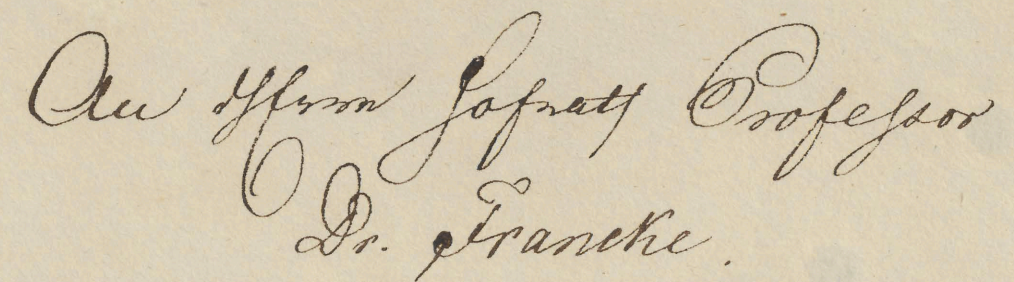 An Herrn Hofrath Professor
Dr. Francke.